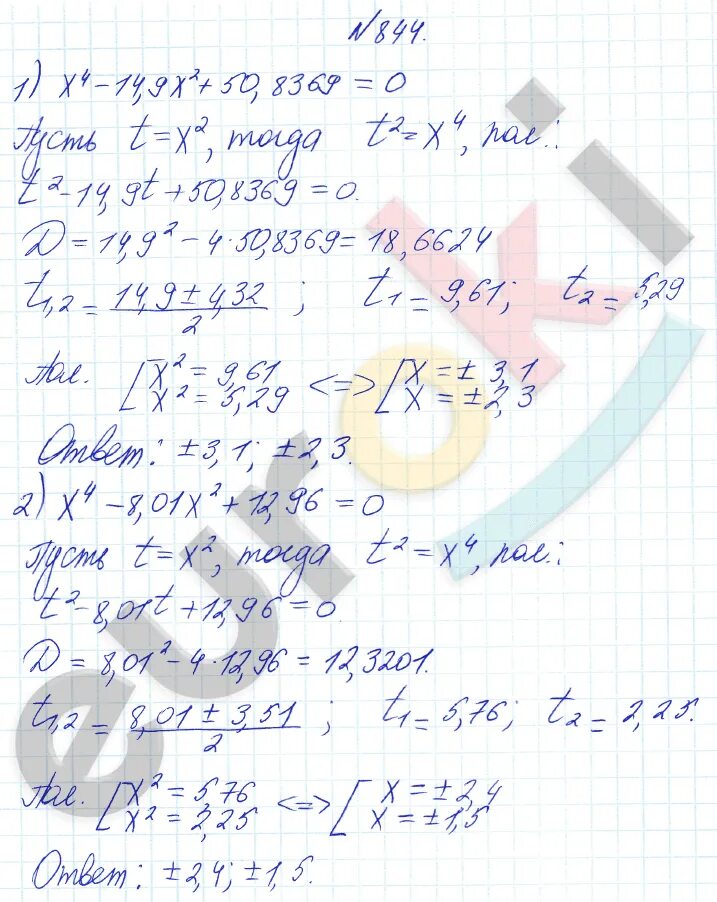 №844.
1) x⁴ - 14,9x² + 50,8369 = 0
Пусть t = x², тогда t² = x⁴, пол.:
t² - 14,9t + 50,8369 = 0.
D = 14,9² - 4·50,8369 = 18,6624
t₁,₂ = (14,9 ± 4,32)/2 ; t₁ = 9,61; t₂ = 5,29
Пол. [x² = 9,61 <=> [x = ± 3,1
x² = 5,29 x = ± 2,3
Ответ: ±3,1; ±2,3.
2) x⁴ - 8,01x² + 12,96 = 0
Пусть t = x², тогда t² = x⁴, пол.:
t² - 8,01t + 12,96 = 0
D = 8,01² - 4·12,96 = 12,3201.
t₁,₂ = (8,01 ± 3,51)/2 ; t₁ = 5,76; t₂ = 2,25.
Пол. [x² = 5,76 <=> [x = ±2,4
x² = 2,25 x = ±1,5
Ответ: ±2,4; ±1,5.
euroki